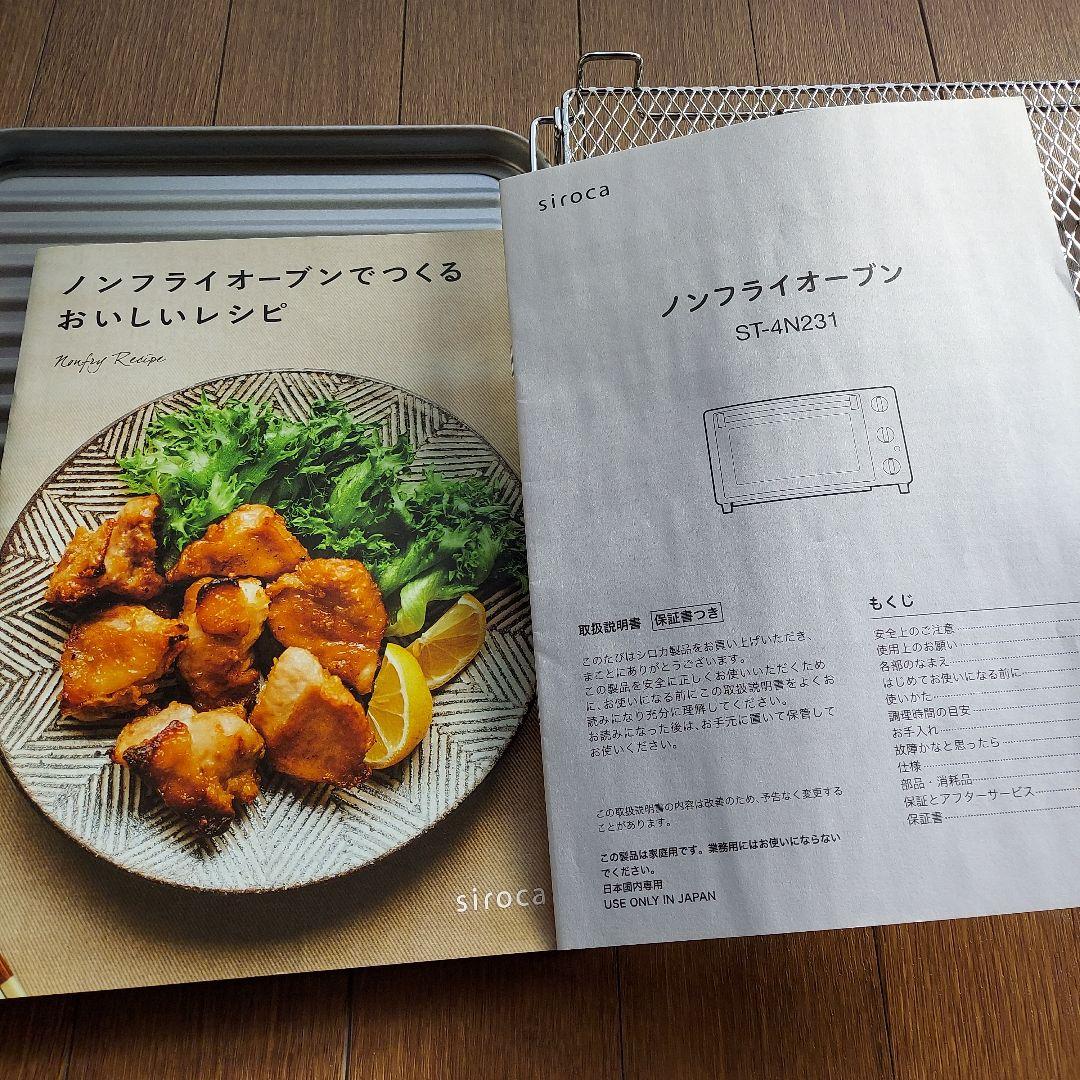 ノンフライオーブンでつくる
おいしいレシピ
Nonfry Recipe
siroca
siroca
ノンフライオーブン
ST-4N231
取扱説明書 保証書つき
このたびはシロカ製品をお買い上げいただき、
まことにありがとうございます。
この製品を安全に正しくお使いいただくため
に、お使いになる前にこの取扱説明書をよくお
読みになり充分に理解してください。
お読みになった後は、お手元に置いて保管して
お使いください。
この取扱説明書の内容は改善のため、予告なく変更する
ことがあります。
この製品は家庭用です。業務用にはお使いにならない
でください。
日本国内専用
USE ONLY IN JAPAN
もくじ
安全上のご注意
使用上のお願い
各部のなまえ
はじめてお使いになる前に
使いかた
調理時間の目安
お手入れ
故障かなと思ったら
仕様
部品・消耗品
保証とアフターサービス
保証書